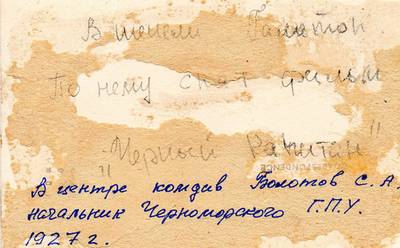 В шинели Гамотон
По нему снят фильм
"Черный Капитан"
RESPONDENCE
В центре комдив Болотов С. А.
начальник Черноморского Г.П.У.
1927 г.